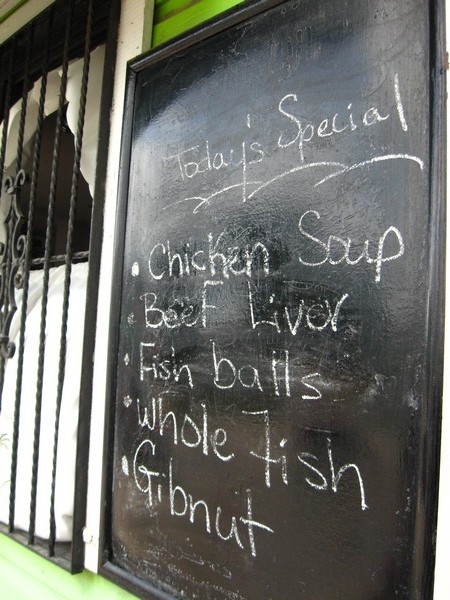 Today's Special
• Chicken Soup
• Beef Liver
• Fish balls
• Whole fish
• Gibnut